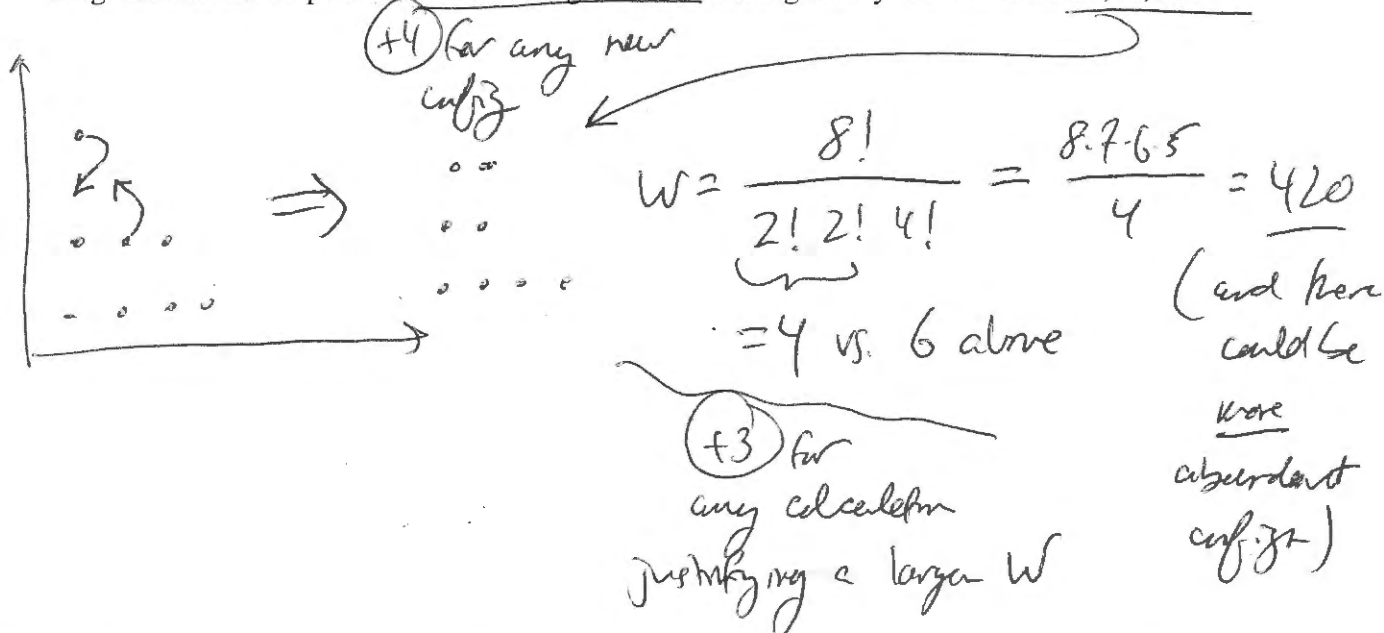 +4 for any new
config
W = 8! / 2! 2! 4! = 8·7·6·5 / 4 = 420
= 4 vs. 6 above
(and there
could be
more
abundant
config)
+3 for
any calculation
justifying a larger W